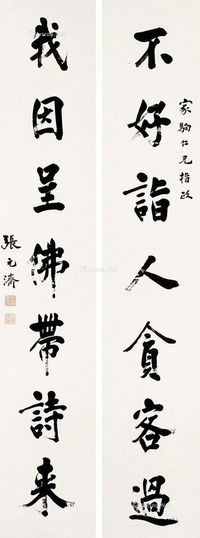 不好詣人貪客過
家駒仁兄指政
我因呈佛帶詩来
張元濟